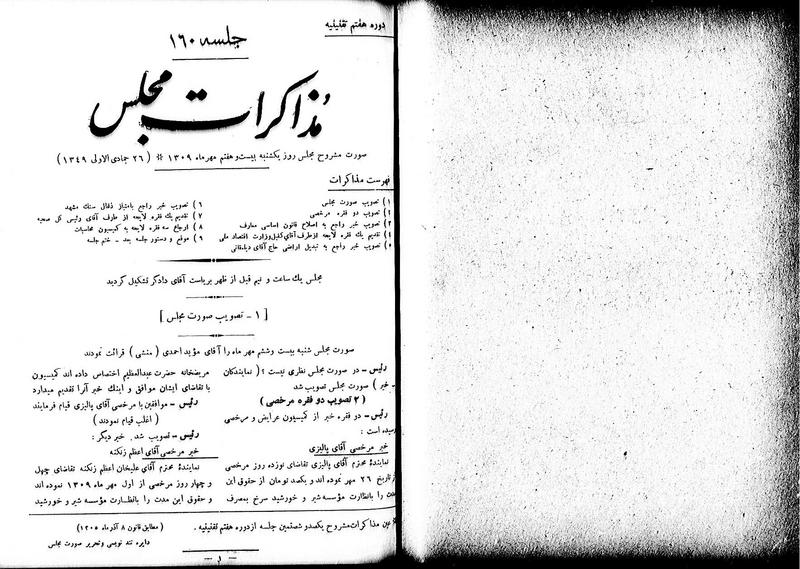 دوره هفتم تقنینیه
جلسه ۱۶۰
مذاکرات مجلس
صورت مشروح مجلس روز یکشنبه بیست و هفتم مهر ماه ۱۳۰۹ * ( ۲۶ جمادی الاولی ۱۳۴۹ )
فهرست مذاکرات
۱) تصویب صورت مجلس
۲) تصویب دو فقره مرخصی
۳) تصویب خبر راجع به اصلاح قانون اساسی معارف
۴) تقدیم یک فقره لایحه از طرف آقای کفیل وزارت اقتصاد ملی
۵) تصویب خبر راجع به تبدیل اراضی حاج آقای
۶) تصویب خبر راجع بامتیاز ذغال سنک مشهد
۷) تقدیم یک فقره لایحه از طرف آقای رئیس کل صحیه
۸) ارجاع سه فقره لایحه به کمیسیون محاسبات
۹) موقع و دستور جلسه بعد - ختم جلسه
مجلس یک ساعت و نیم قبل از ظهر بریاست آقای دادگر تشکیل گردید
[ ۱ - تصویب صورت مجلس ]
صورت مجلس شنبه بیست و ششم مهر ماه را آقای مؤید احمدی ( منشی ) قرائت نمودند
رئیس - در صورت مجلس نظری نیست ؟ ( نمایندگان
- خیر ) صورت مجلس تصویب شد
( ۲ تصویب دو فقره مرخصی )
رئیس - دو فقره خبر از کمیسیون عرایض و مرخصی
رسیده است :
خبر مرخصی آقای پالیزی
نماینده محترم آقای پالیزی تقاضای نوزده روز مرخصی
از تاریخ ۲۶ مهر نموده اند و یکصد تومان از حقوق این
مدت را بانظارت مؤسسه شیر و خورشید سرخ بمصرف
مریضخانه حضرت عبدالعظیم اختصاص داده اند کمیسیون
با تقاضای ایشان موافق و اینک خبر آنرا تقدیم میدارد
رئیس - موافقین با مرخصی آقای پالیزی قیام فرمایند
( اغلب قیام نمودند )
رئیس - تصویب شد. خبر دیگر :
خبر مرخصی آقای اعظم زنگنه
نمایندهٔ محترم آقای علیخان اعظم زنگنه تقاضای چهل
و چهار روز مرخصی از اول مهر ماه ۱۳۰۹ نموده اند
و حقوق این مدت را بانظارت مؤسسه شیر و خورشید
مذاکرات مشروح یکصد و شصتمین جلسه از دوره هفتم تقنینیه .
( مطابق قانون ۸ آذر ماه ۱۳۰۵ )
دایره تند نویسی و تحریر صورت مجلس
- ۱ -